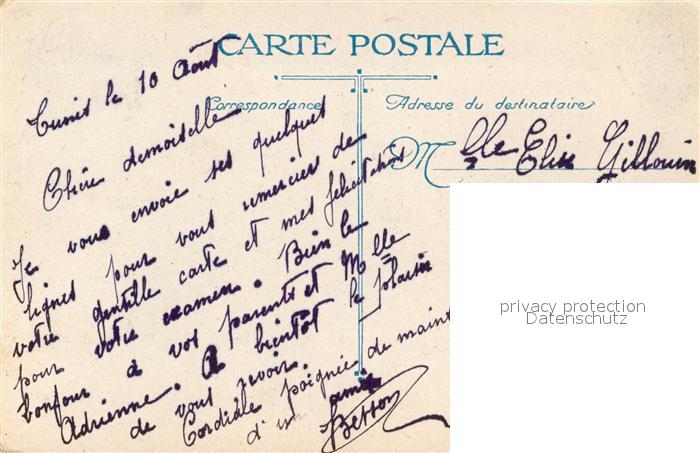 CARTE POSTALE
Correspondance
Adresse du destinataire
Tunis le 10 Août
Chère demoiselle
Je vous envoie ses quelques
lignes pour vous remercier de
votre gentille carte et mes félicitations
pour votre examen. Bien le
bonjour à vos parents et Mlle
Adrienne. A bientôt le plaisir
de vous revoir
Cordiale poignée de mains
d'un ami
Besson
Mlle Elise Gillouin
privacy protection
Datenschutz